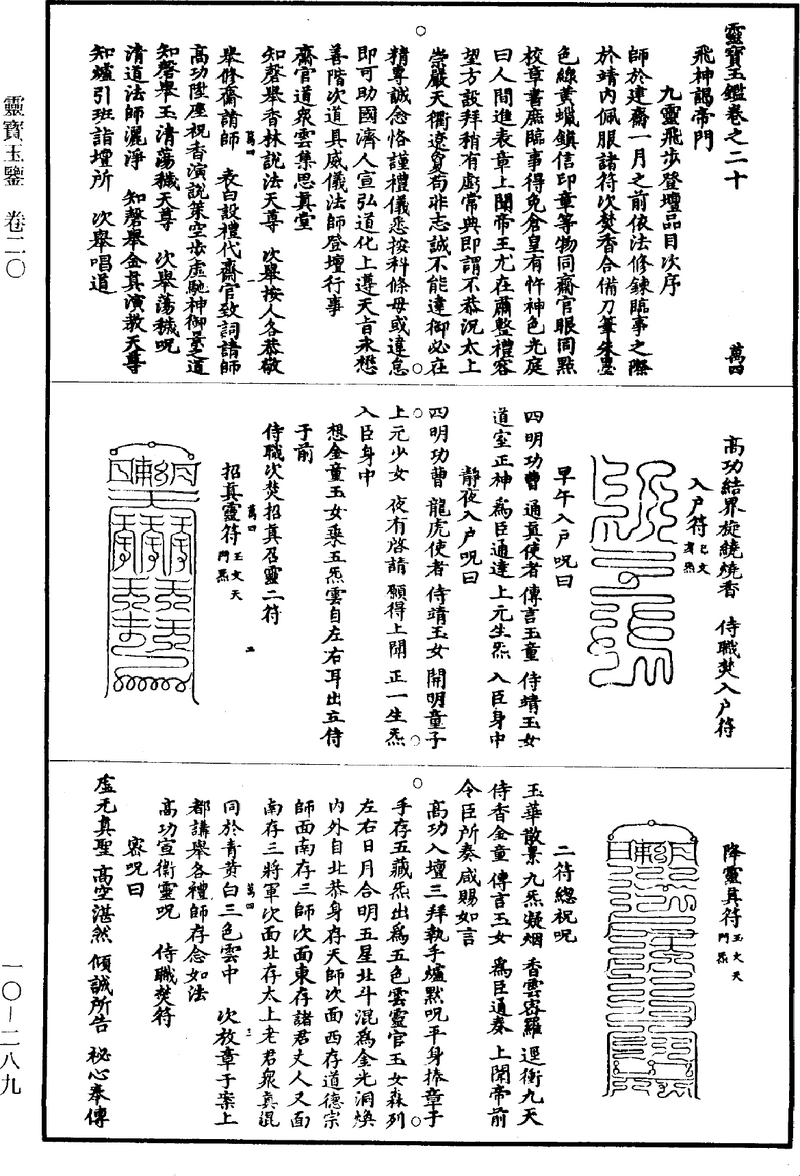 靈寶玉鑑卷之二十
萬四
飛神謁帝門
九靈飛步登壇品目次序
師於建齋一月之前依法修鍊臨事之際
於靖內佩服諸符次焚香合備刀筆朱墨
色線黃蠟鎮信印章等物同齋官眼同點
校章書庶臨事得免倉皇有忤神色光庭
曰人間進表章上聞帝王尤在肅整禮容
望方設拜稍有虧常典即謂不恭況太上
崇嚴天衢遼夐苟非志誠不能達御必在
精專誠念恪謹禮儀悉按科條毋或違怠
即可助國濟人宣弘道化上遵天旨永懋
善階次道具威儀法師登壇行事
齋官道衆雲集思真堂
知磬舉香林說法天尊　次舉按人各恭敬
舉修齋請師　表白設禮代齋官致詞請師
高功陞座祝香演說策空步虛馳神御景之道
知磬舉玉清蕩穢天尊　次舉蕩穢呪
清道法師灑淨　知磬舉金真演教天尊
知爐引班詣壇所　次舉唱道
高功結界旋繞燒香　侍職焚入户符
入户符
早午入户呪曰
四明功曹 通真使者 傳言玉童 侍靖玉女
道室正神 爲臣通達 上元生炁 入臣身中
靜夜入户呪曰
四明功曹 龍虎使者 侍靖玉女 開明童子
上元少女 夜有啓請 願得上聞 正一生炁
入臣身中
想金童玉女乘五炁雲自左右耳出立侍
于前
侍職次焚招真召靈二符
萬四
二
招真靈符 玉文天門炁
降靈真符 玉文天門炁
二符總祝呪
玉華散景 九炁凝烟 香雲密羅 逕衝九天
侍香金童 傳言玉女 爲臣通奏 上聞帝前
令臣所奏 咸賜如言
高功入壇三拜執手爐默呪平身捧章于
手存五藏炁出爲五色雲靈官玉女森列
左右日月合明五星北斗混爲金光洞煥
內外自北恭身存天師次面西存道德宗
師面南存三師次面東存諸君丈人又面
南存三將軍次面北存太上老君衆真混
同於青黃白三色雲中　次放章于案上
萬四
三
都講舉各禮師存念如法
高功宣衛靈呪　侍職焚符
密呪曰
虛无真聖 高空湛然 傾誠所告 祕心奉傳
靈寶玉鑒　卷二〇
一〇—二八九